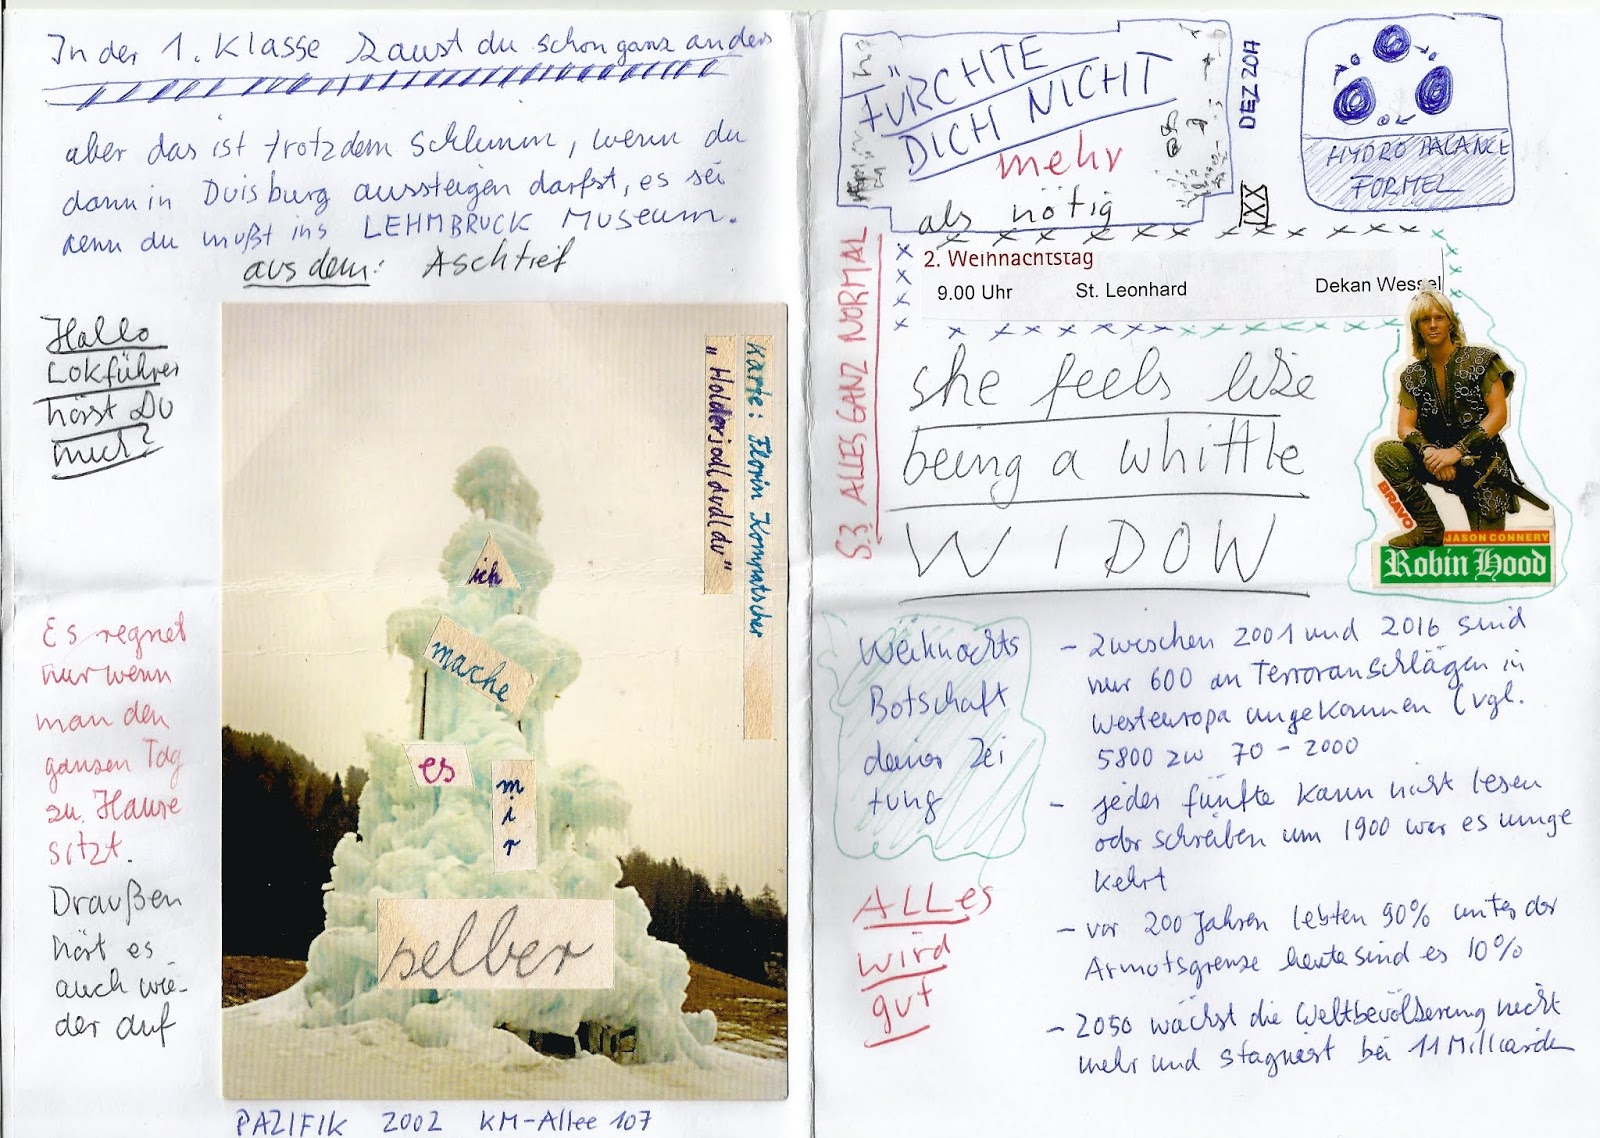 In der 1. Klasse zaust du schon ganz anders
aber das ist trotzdem schlimm, wenn du
dann in Duisburg aussteigen darfst, es sei
denn du mußt ins LEHMBRUCK MUSEUM.
aus dem: Aschtief
Hallo
Lokführer
hörst Du
mich?
Es regnet
nur wenn
man den
ganzen Tag
zu Hause
sitzt.
Draußen
hört es
auch wie-
der auf
Karte: Florin Kompatscher
"Holderjodldudldu"
ich
mache
es
mir
selber
PAZIFIK 2002 KM-Allee 107
"FÜRCHTE
DICH NICHT
mehr
als nötig
DEZ 2017
XX
HYDRO BALANCE
FORMEL
2. Weihnachtstag
9.00 Uhr St. Leonhard Dekan Wessel
S.3 ALLES GANZ NORMAL
she feels like
being a whittle
WIDOW
BRAVO
JASON CONNERY
Robin Hood
Weihnachts
Botschaft
deiner Zei
tung
ALLes
wird
gut
- zwischen 2001 und 2016 sind
nur 600 an Terroranschlägen in
Westeuropa umgekommen (vgl.
5800 zw 70-2000
- jeder fünfte kann nicht lesen
oder schreiben um 1900 war es umge
kehrt
- vor 200 Jahren lebten 90% unter der
Armutsgrenze heute sind es 10%
- 2050 wächst die Weltbevölkerung nicht
mehr und stagniert bei 11 Milliarden